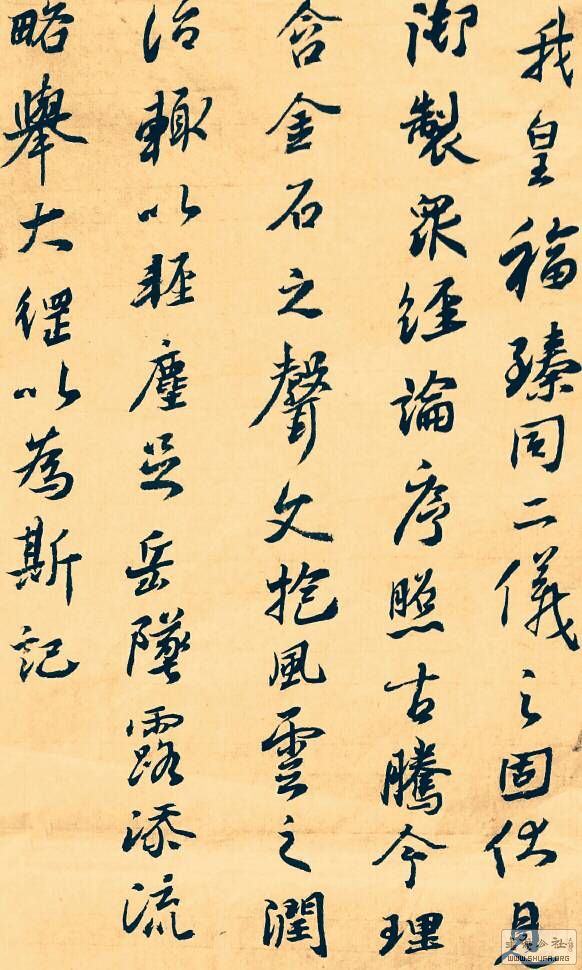 我皇福臻同二儀之固伏見
御製眾經論序照古騰今理
含金石之聲文抱風雲之潤
治輒以輕塵足岳墜露添流
略舉大綱以為斯記
WWW.SHUFA.ORG